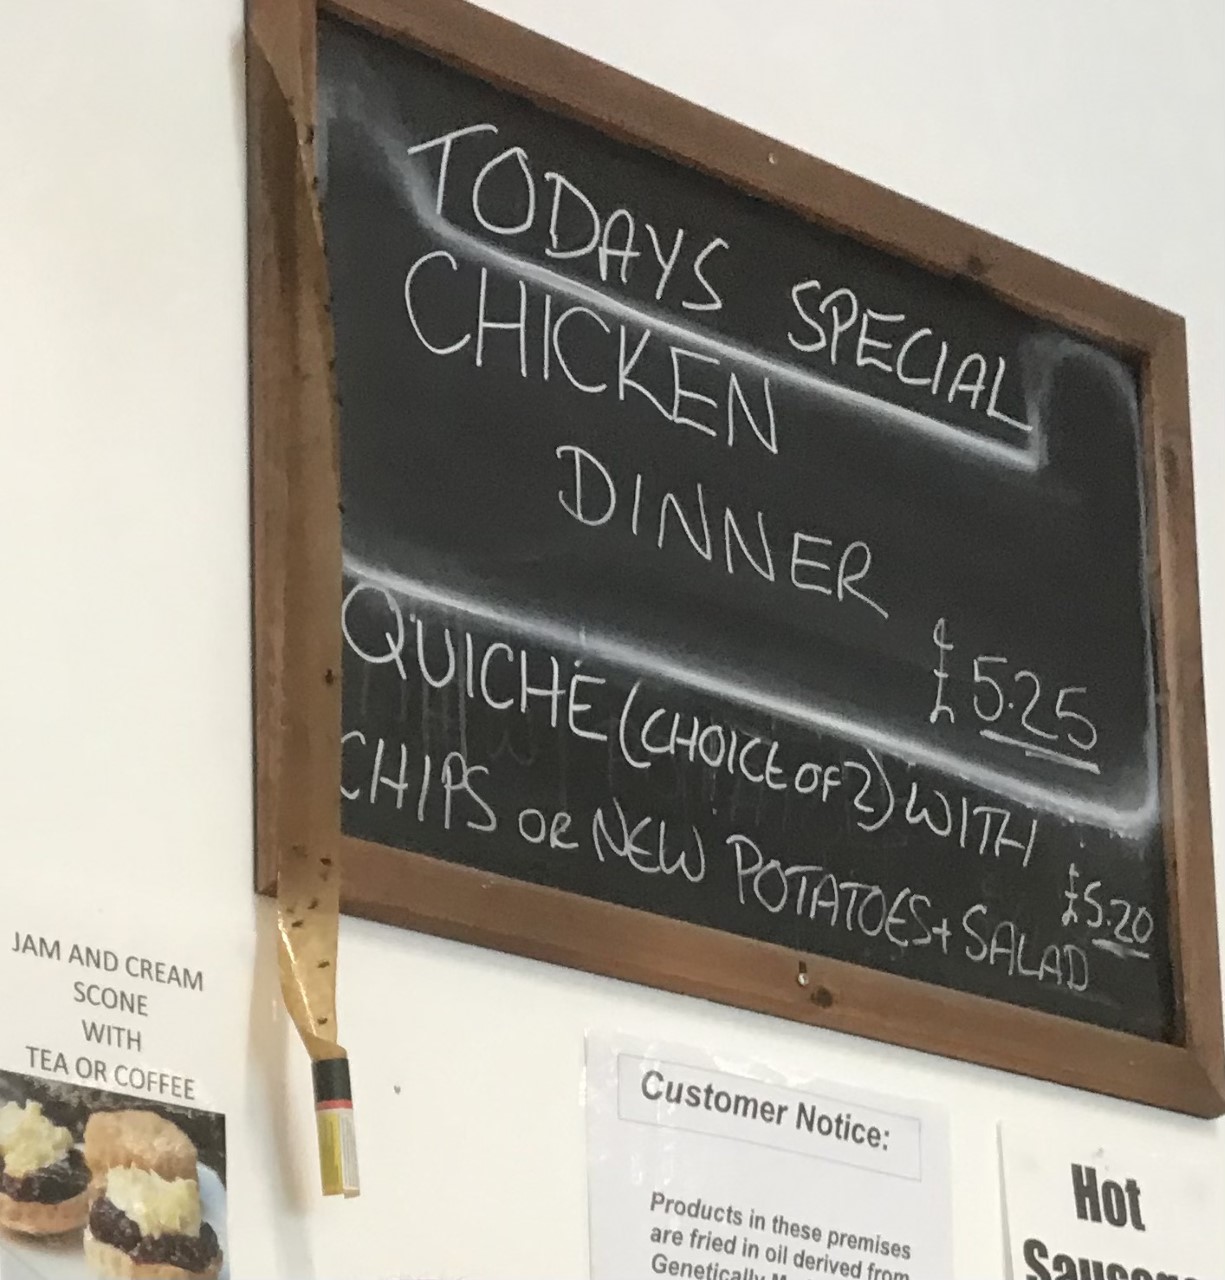 TODAYS SPECIAL
CHICKEN
DINNER
£5.25
QUICHE (CHOICE OF 2) WITH
CHIPS OR NEW POTATOES + SALAD
£5.20
JAM AND CREAM
SCONE
WITH
TEA OR COFFEE
Customer Notice:
Products in these premises
are fried in oil derived from
Genetically
Hot